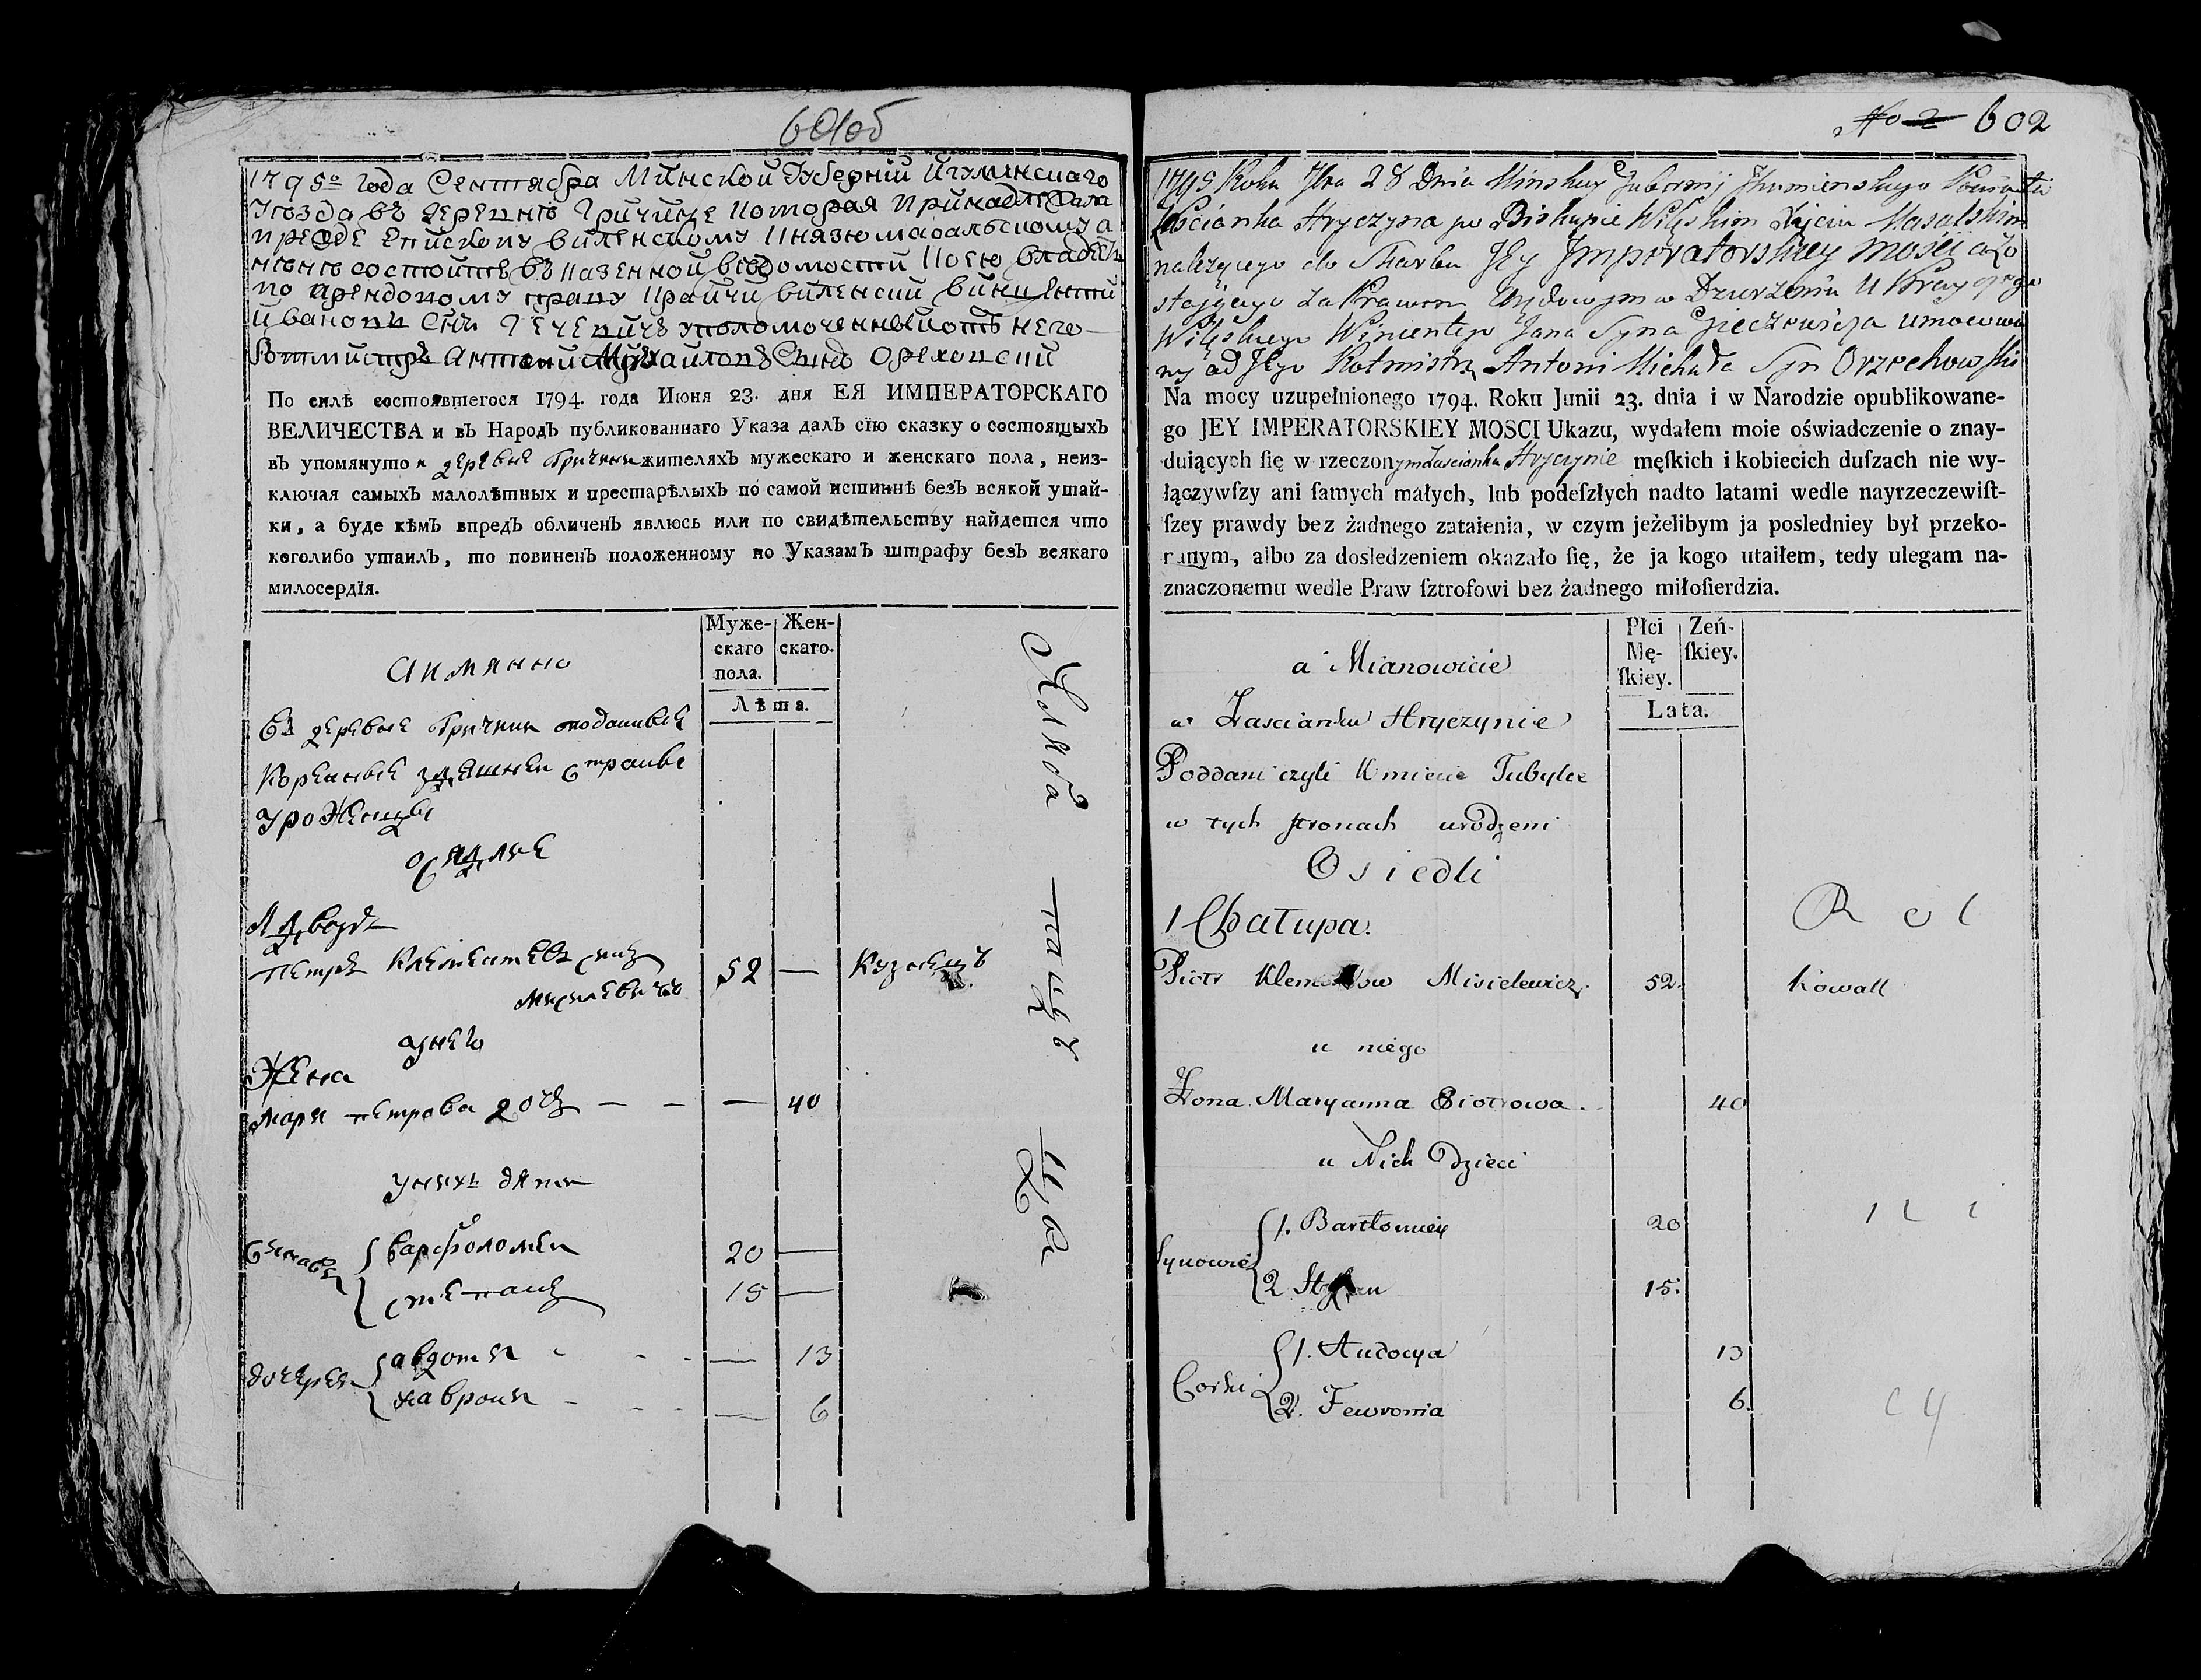 601об
1795го года Сентября Минской Губернїи Игуменскаго
уезда въ деревню Гричине которая принадлежала
прежде епископу виленскому князю масальскому а
ныне состоитъ въ казенной ведомости коею владеетъ
по арендоному праву виленски винцентий
ивановъ Снъ Гечевичъ уполомоченный отъ него
Ротмистръ Антоний Михайловъ Сынъ Ореховский
По силѣ состоявшегося 1794. года Июня 23. дня ЕЯ ИМПЕРАТОРСКАГО
ВЕЛИЧЕСТВА и въ Народъ публикованнаго Указа далъ сїю сказку о состоящыхъ
въ упомянутой деревне Гричини жителяхъ мужескаго и женскаго пола, неиз-
ключая самыхъ малолѣтных и престарѣлыхъ по самой истиннѣ безъ всякой утай-
ки, а буде кѣмъ впредъ обличенъ явлюсь или по свидѣтельству найдется что
коголибо утаилъ, то повиненъ положенному по Указамъ штрафу безъ всякаго
милосердїя.
Муже-скаго пола. Жен-скаго.
Лѣта.
Аимянно
Въ деревне Гричини подданные
Коренные здешнеи стороны
уроженцы
оседлые
1 Двор
Петръ Клементевъ сынъ
Мисилевичъ 52 — Кузнецъ
у него
Жена
мари петрова дочь — — — 40
у нихъ дети
Сыновья { варфоломеи 20 —
степанъ 15 —
дочери { авдотия — 13
хаврония — 6
No 2 602
1795 Roku 7bra 28 Dnia Minskiey Gubernij Ihumienskiego Powiatu
Zascianka Hryczyna po Biskupie Wileskim Xięciu Masalskim
należącego do Skarbu Jey Imperatorskiey mości a zo
stającego za Prawem w Dzierżeniu
Wileskiego Wincentego Jana Syna Gieczewicza umocowa
ny od Jego Rotmistrz Antoni Michała Syn Orzechowski
Na mocy uzupełnionego 1794. Roku Junii 23. dnia i w Narodzie opublikowane-
go JEY IMPERATORSKIEY MOSCI Ukazu, wydałem moie oświadczenie o znay-
duiących ſię w rzeczonym Zascianku Hryczynie męſkich i kobiecich duſzach nie wy-
łączywſzy ani ſamych małych, lub podeſzłych nadto latami wedle nayrzeczewiſt-
ſzey prawdy bez żadnego zataienia, w czym jeżelibym ja posledniey był przeko-
ranym, albo za dosledzeniem okazało ſię, że ja kogo utaiłem, tedy ulegam na-
znaczonemu wedle Praw ſztrofowi bez żadnego miłoſierdzia.
Płci Mę-ſkiey. Zeń-ſkiey.
Lata.
a Mianowicie
w Zascianku Hryczynie
Poddani czyli Kmiecie Tubylce
w tych stronach urodzeni
Osiedli
1 Chałupa.
Piotr Misielewicz. 52. Kowall
u niego
Zona Maryanna Piotrowa. 40
u Nich Dzieci
Synowie { 1. Bartłomiey 20
2 Stefan 15.
Corki { 1. Audocya 13
2. Fewronia 6.